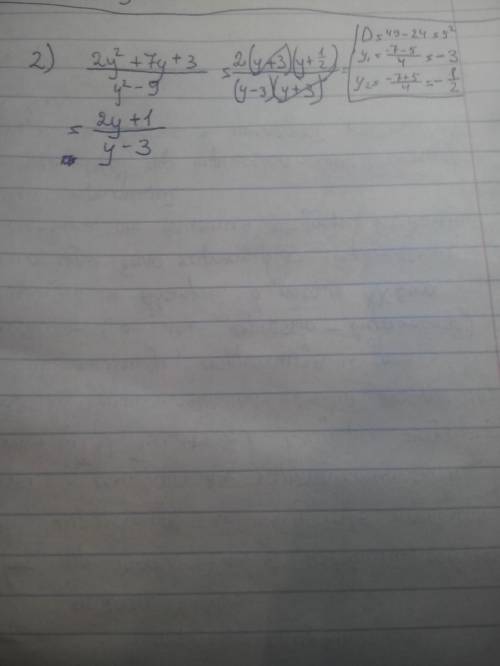 2) (2y² + 7y + 3)/(y² - 9) = 2(y+3)(y+1/2)/(y-3)(y+3) =
D = 49 - 24 = 5²
y₁ = (-7-5)/4 = -3
y₂ = (-7+5)/4 = -1/2
= (2y+1)/(y-3)